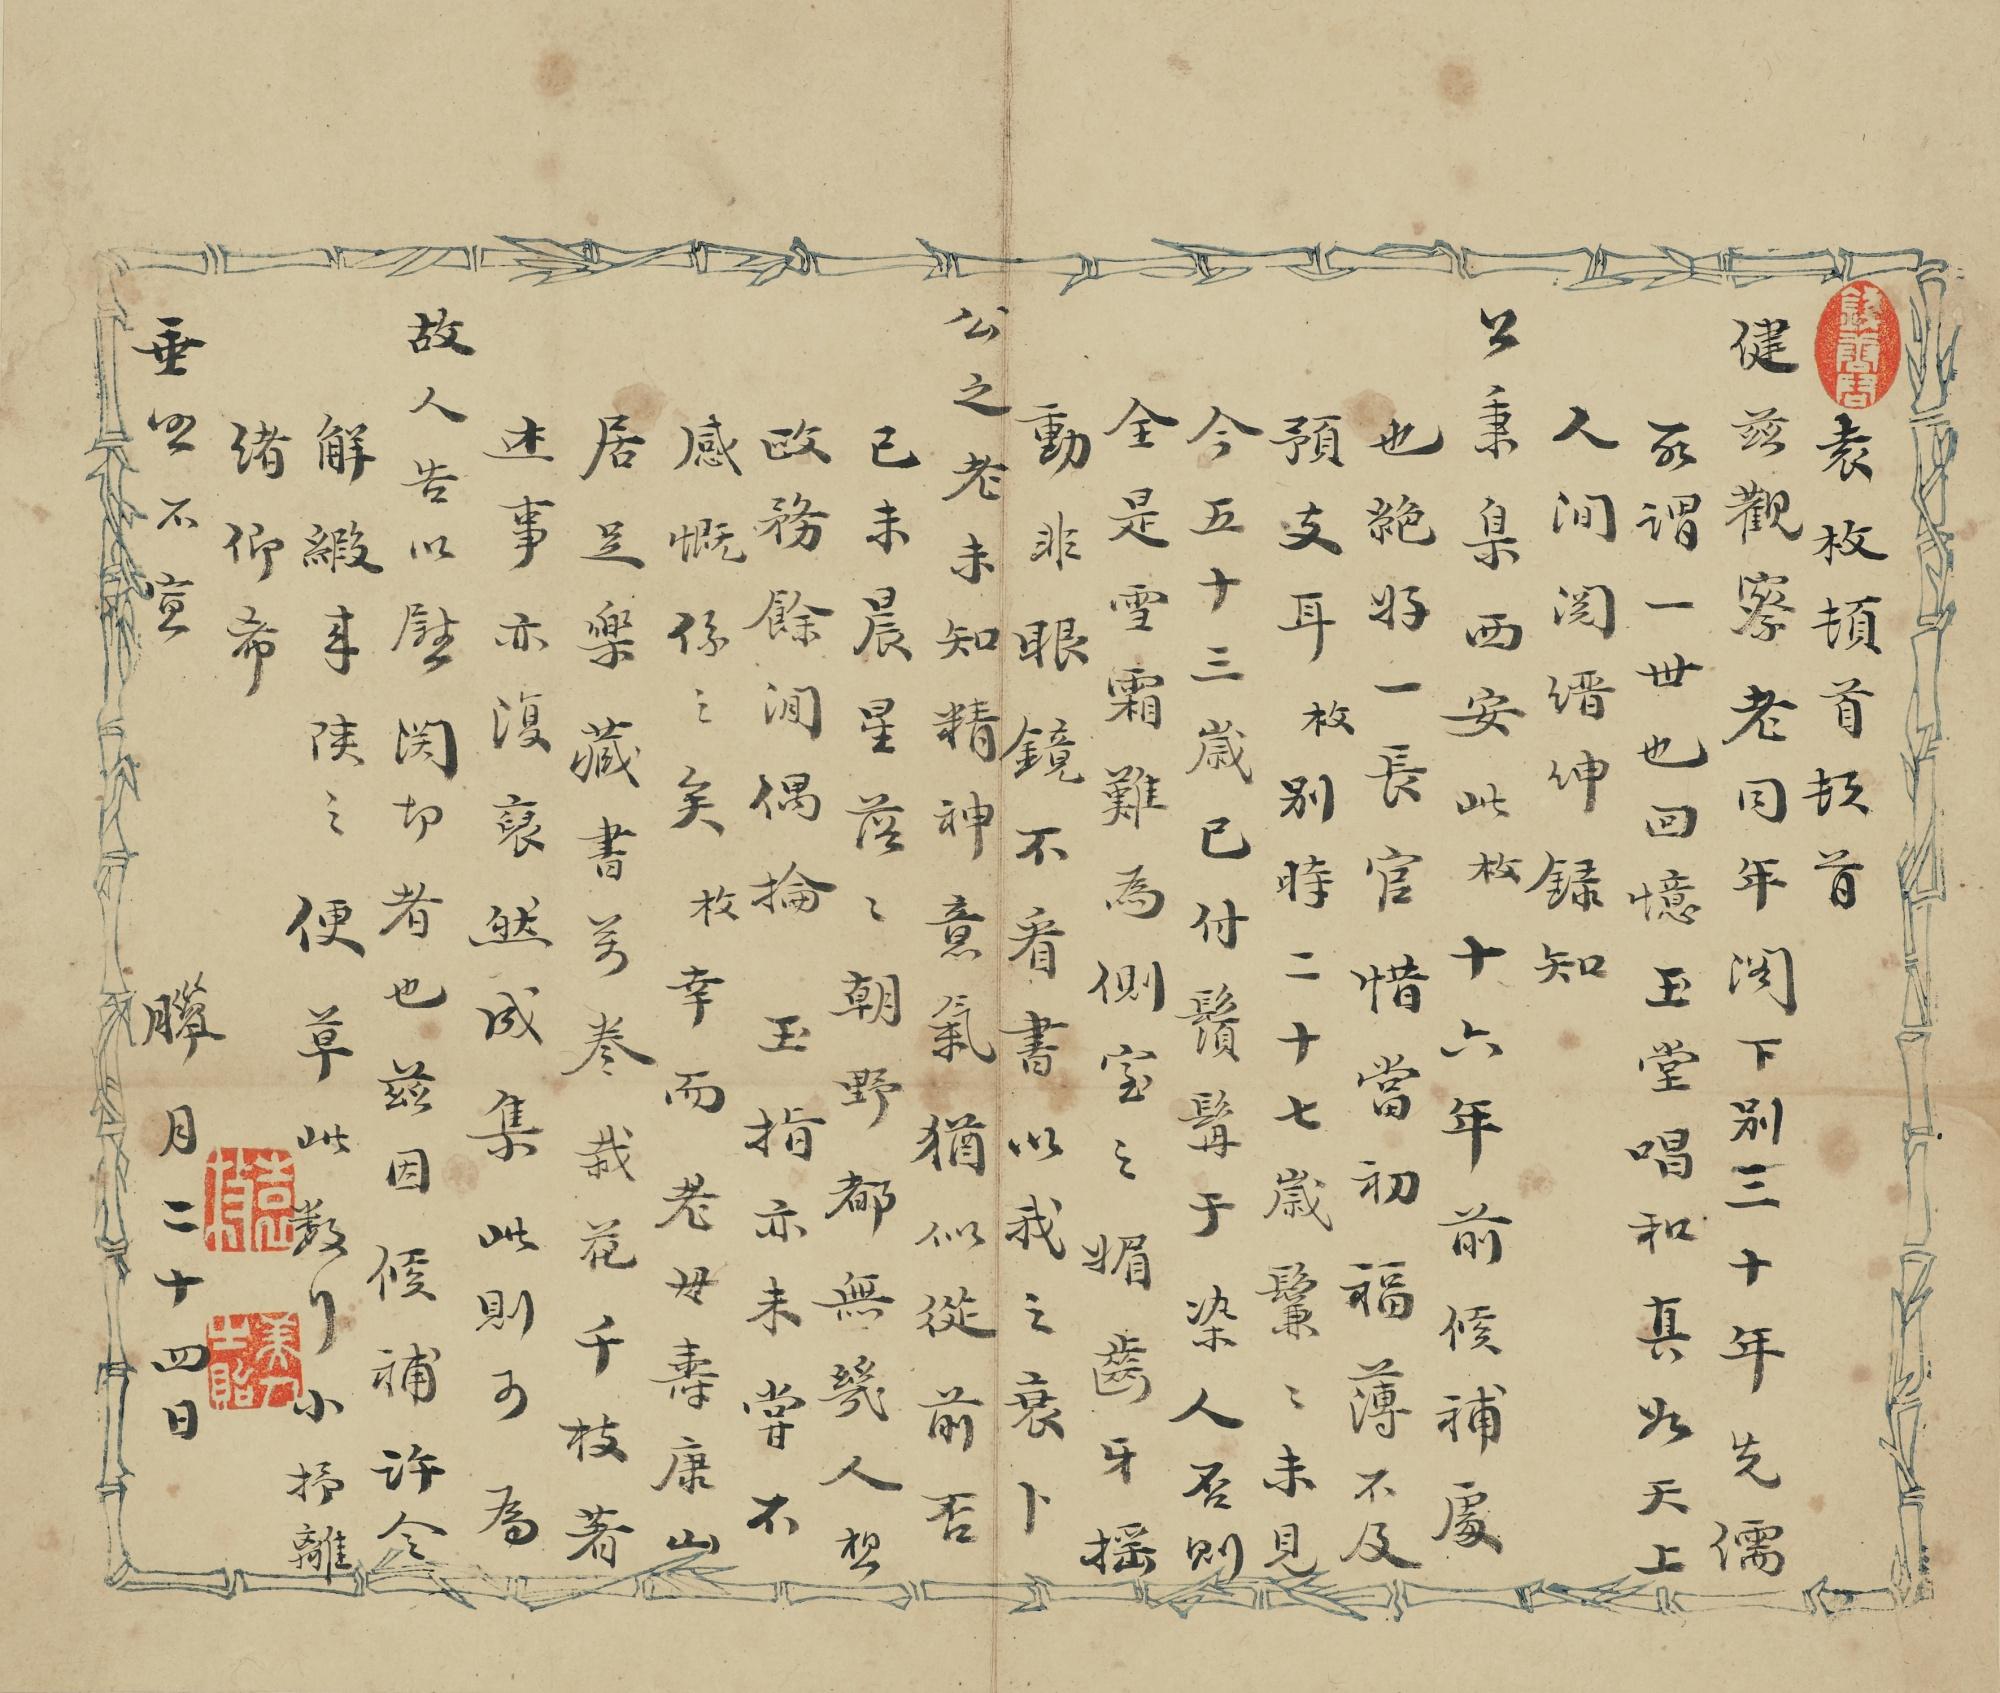 袁枚頓首頓首
健莊觀察老同年閣下別三十年先儒
所謂一世也回憶玉堂唱和真如天上
人間閱縉紳錄知
公秉臬西安此枚十六年前候補處
也絶好一長官惜當初福薄不及
預支耳枚別時二十七歲鬑鬑未見
今五十三歲已付鬚髯于染人否則
全是雪霜難為側室之媚齒牙搖
動非眼鏡不看書以我之衰卜
公之老未知精神意氣猶似從前否
己未晨星落落朝野都無幾人想
政務餘閒偶掄玉指亦未嘗不
感慨係之矣枚幸而老母壽康山
居足樂藏書萬卷栽花千枝著
述事亦復裒然成集此則可為
故人告以慰関切者也茲因候補許令
觧緞来陝之便草此數行小抒離
緒仰希
垂照不宣
臘月二十四日